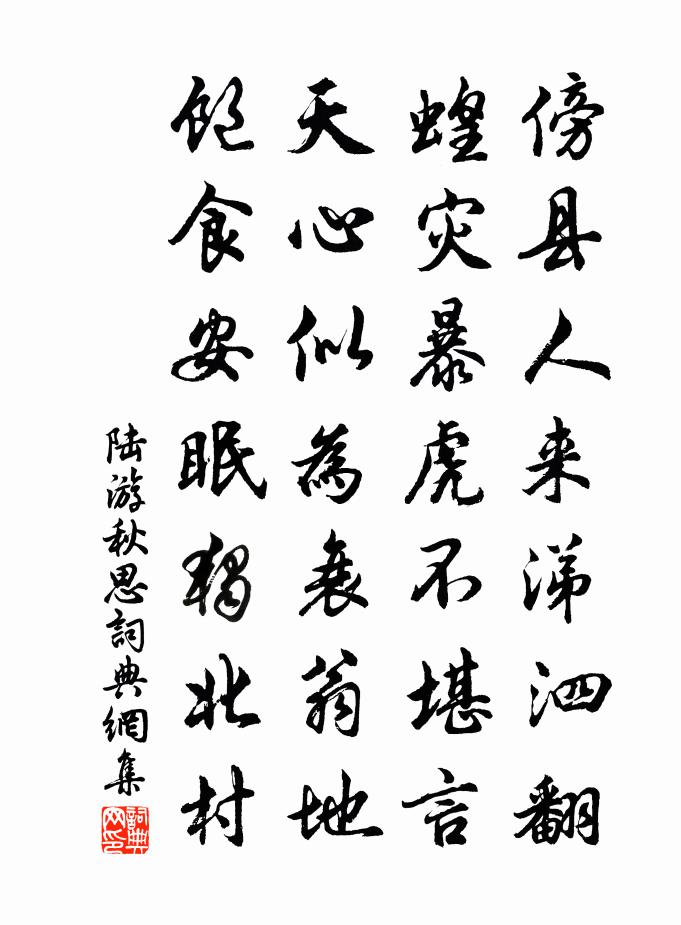 傍县人来涕泗翻
蝗灾暴虎不堪言
天心似為衰翁地
飽食安眠獨北村
陆游秋思詞典網集
詞典
网印